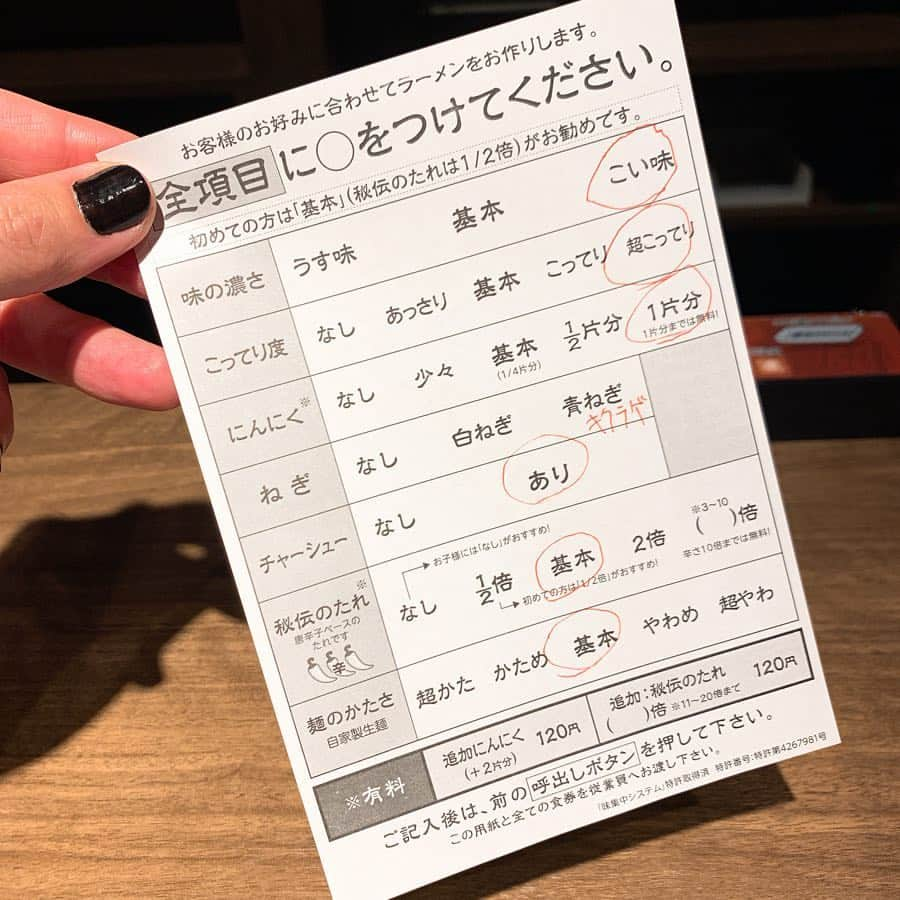 お客様のお好みに合わせてラーメンをお作りします。
全項目に○をつけてください。
初めての方は「基本」(秘伝のたれは1/2倍)がお勧めです。
味の濃さ うす味 基本 こい味
こってり度 なし あっさり 基本 こってり 超こってり
にんにく※ なし 少々 基本 1/2片分 1片分
(1/4片分) 1片分までは無料!
ねぎ なし 白ねぎ 青ねぎ
キクラゲ
チャーシュー なし あり
お子様には「なし」がおすすめ!
秘伝のたれ※ なし 1/2倍 基本 2倍 ※3~10 ( )倍
初めての方は「1/2倍」がおすすめ! 辛さ10倍までは無料!
唐辛子ベースの
たれです
辛
麺のかたさ 超かた かため 基本 やわめ 超やわ
自家製生麺
※有料 追加にんにく (+2片分) 120円 追加:秘伝のたれ ( )倍 ※11~20倍まで 120円
ご記入後は、前の呼出しボタンを押して下さい。
この用紙と全ての食券を従業員へお渡し下さい。
「味集中システム」特許取得済 特許番号:特許第4267981号